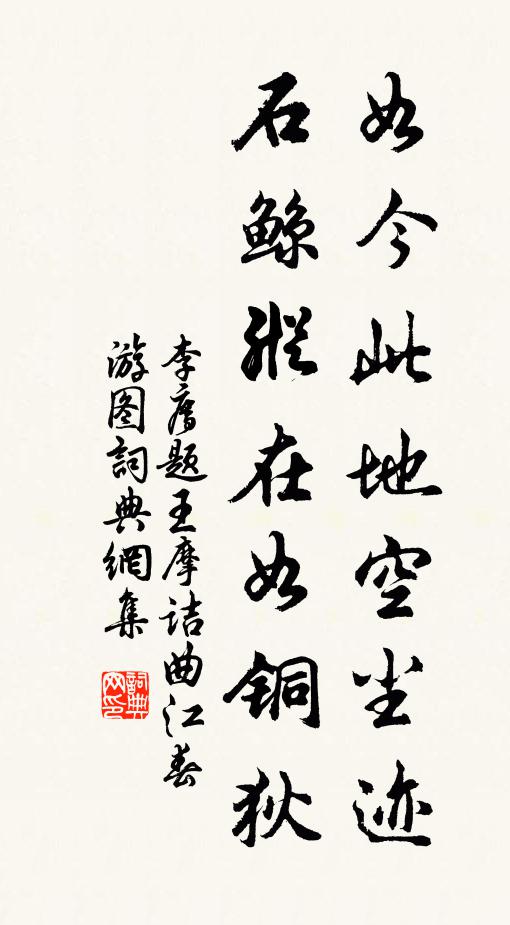 如今此地空尘迹
石鲸纵在如铜狄
李廌题王摩诘曲江春
游图词典網集
詞典网印